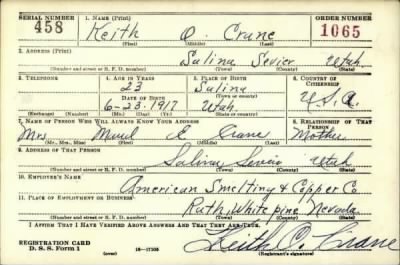 SERIAL NUMBER 1. NAME (Print) ORDER NUMBER
458 Keith O. Crane 1065
(First) (Middle) (Last)
2. ADDRESS (Print)
Salina Sevier Utah
(Number and street or R. F. D. number) (Town) (County) (State)
3. TELEPHONE 4. AGE IN YEARS 5. PLACE OF BIRTH 6. COUNTRY OF CITIZENSHIP
23 Salina
DATE OF BIRTH (Town or county)
6-23-1917 Utah U.S.A.
(Exchange) (Number) (Mo.) (Day) (Yr.) (State or country)
7. NAME OF PERSON WHO WILL ALWAYS KNOW YOUR ADDRESS 8. RELATIONSHIP OF THAT PERSON
Mrs E Crane Mother
(Mr., Mrs., Miss) (First) (Middle) (Last)
9. ADDRESS OF THAT PERSON
Salina Sevier Utah
(Number and street or R. F. D. number) (Town) (County) (State)
10. EMPLOYER'S NAME
American Smelting & Copper Co
11. PLACE OF EMPLOYMENT OR BUSINESS
Ruth, White pine Nevada
(Number and street or R. F. D. number) (Town) (County) (State)
I AFFIRM THAT I HAVE VERIFIED ABOVE ANSWERS AND THAT THEY ARE TRUE.
REGISTRATION CARD
D. S. S. FORM 1 (over) 16-17105 Keith O. Crane
(Registrant's signature)